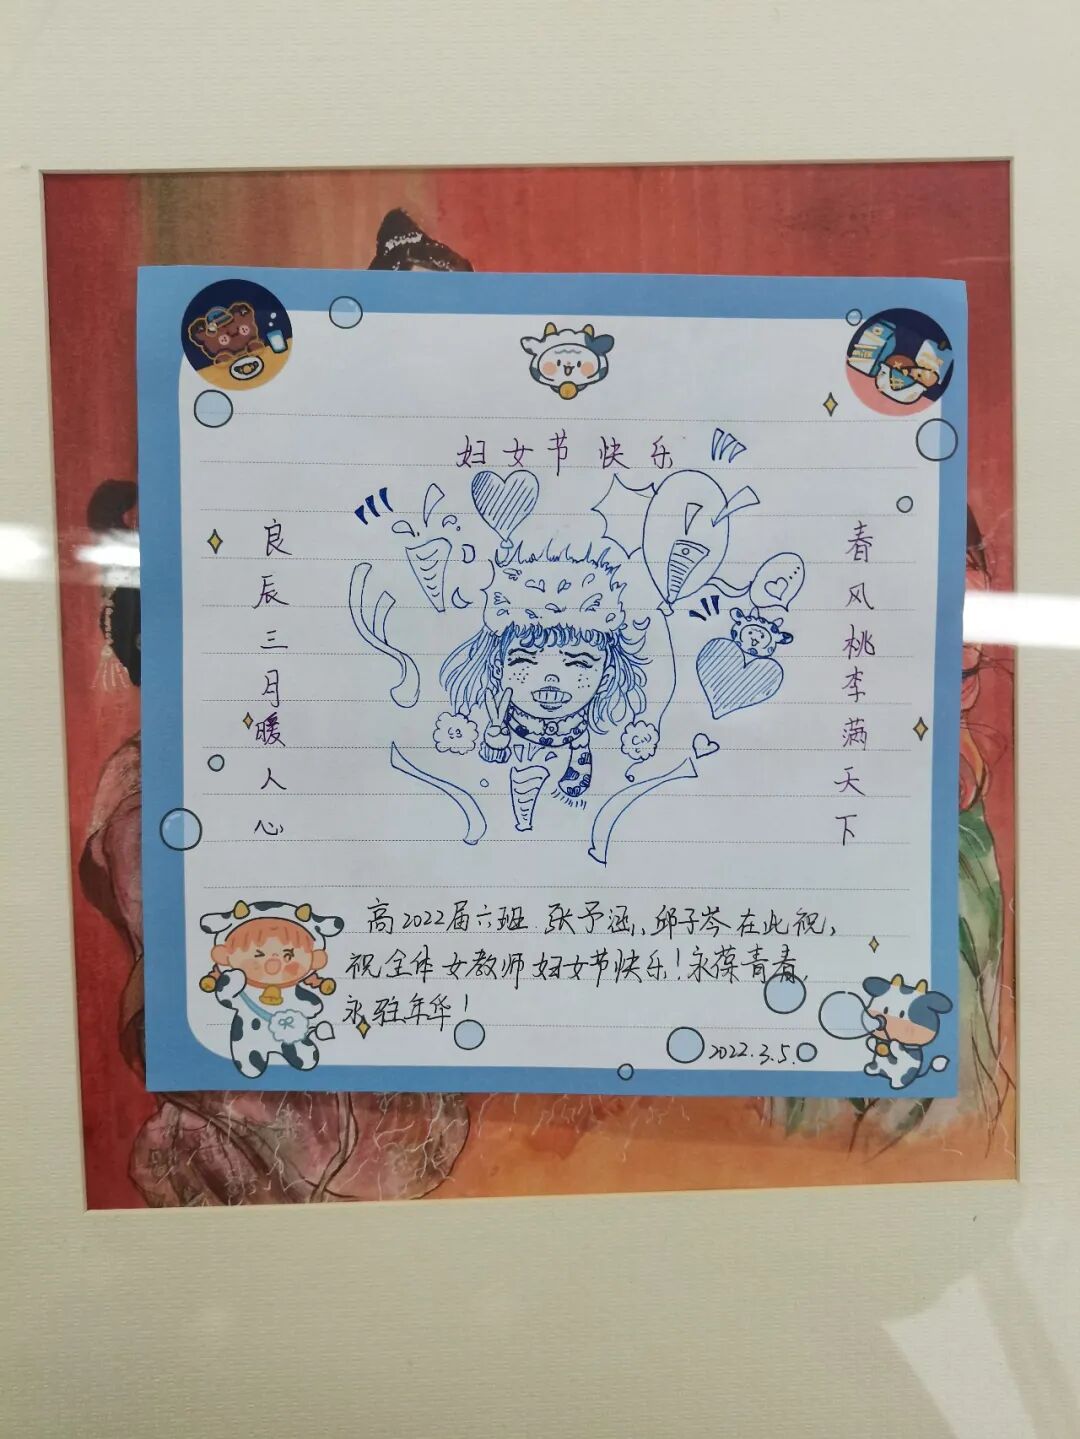 妇女节快乐
春风桃李满天下
良辰三月暖人心
高2022届六班 张予涵、邱子岑在此祝，
祝全体女教师妇女节快乐！永葆青春，
永驻年华！
2022.3.5.